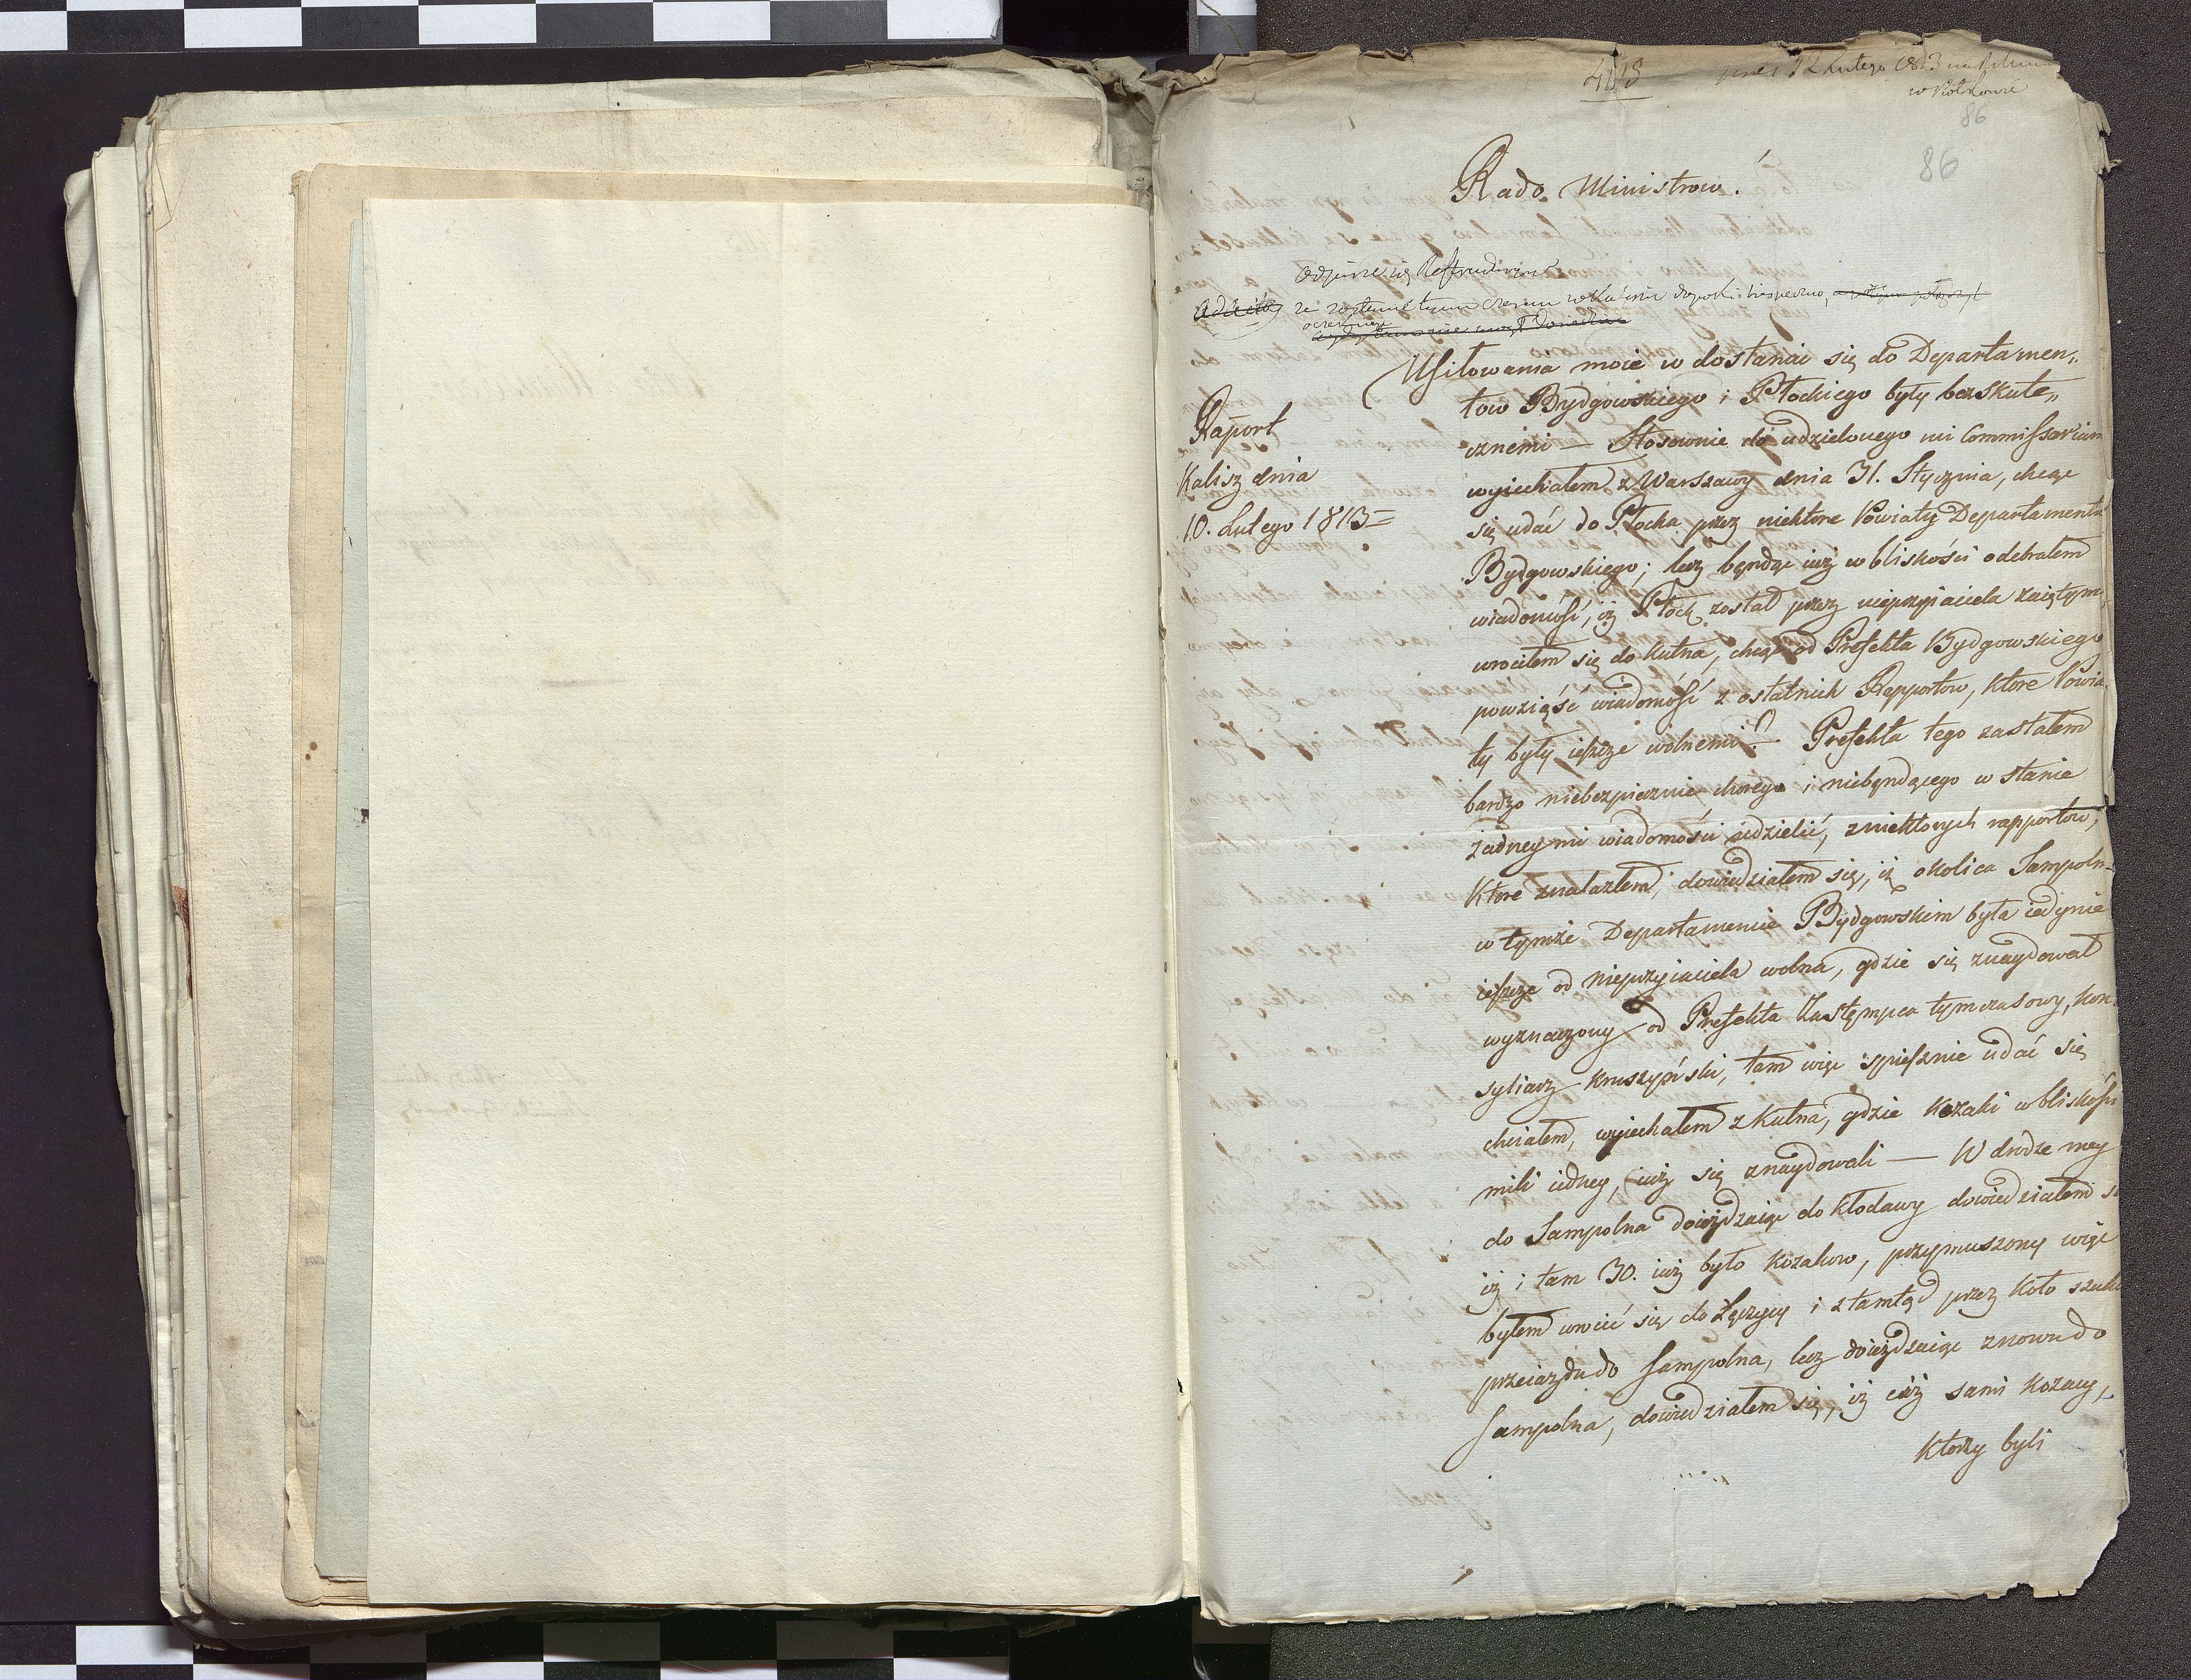 418
pres 12 Lutego 1813
86
86
Rado Ministrow!
odpisze się
że
Raport
Kalisz dnia
10. Lutego 1813 =
Usiłowania moie w dostaniu się do Departamen„
tow Bydgowskiego i Płockiego były bezskute„
cznemi — Stosownie do udzielonego mi Commissorium
wyiechałem z Warszawy dnia 31. Stycznia, chcąc
się udać do Płocka przez niektore Powiaty Departamentu
Bydgowskiego; lecz będąc iuż w bliskości odebrałem
wiadomość, iż Płock został przez nieprzyiaciela zaiętym,
wrociłem się do Kutna, chcąc od Prefekta Bydgowskiego
powziąść wiadomość z ostatnich Rapportow, ktore Powia
ty były ieszcze wolnemi? — Prefekta tego zastałem
bardzo niebezpiecznie chorego i niebędącego w stanie
żadney mi wiadomości udzielić, z niektorych rapportow,
ktore znalazłem, dowiedziałem się, iż okolica Sampoln-
w tymże Departamencie Bydgowskim była iedynie
ieszcze od nieprzyiaciela wolna, gdzie się znaydował
wyznaczony od Prefekta Zastępca tymczasowy, Kon
syliarz Kruszyński, tam więc spiesznie udać się
chciałem, wyiechałem z Kutna, gdzie Kozaki w bliskości
mili iedney, iuż się znaydowali — W drodze mey
do Sampolna doieżdzaiąc do Kłodawy dowiedziałem s
iż i tam 30. iuż było Kozakow, przymuszony więc
byłem wrócić się do Łęczycy i ztamtąd przez Koło szuk
przeiazdu do Sampolna, lecz doieżdzaiąc znowu do
Sampolna, dowiedziałem się, iż ciż sami Kozacy,
ktorzy byli